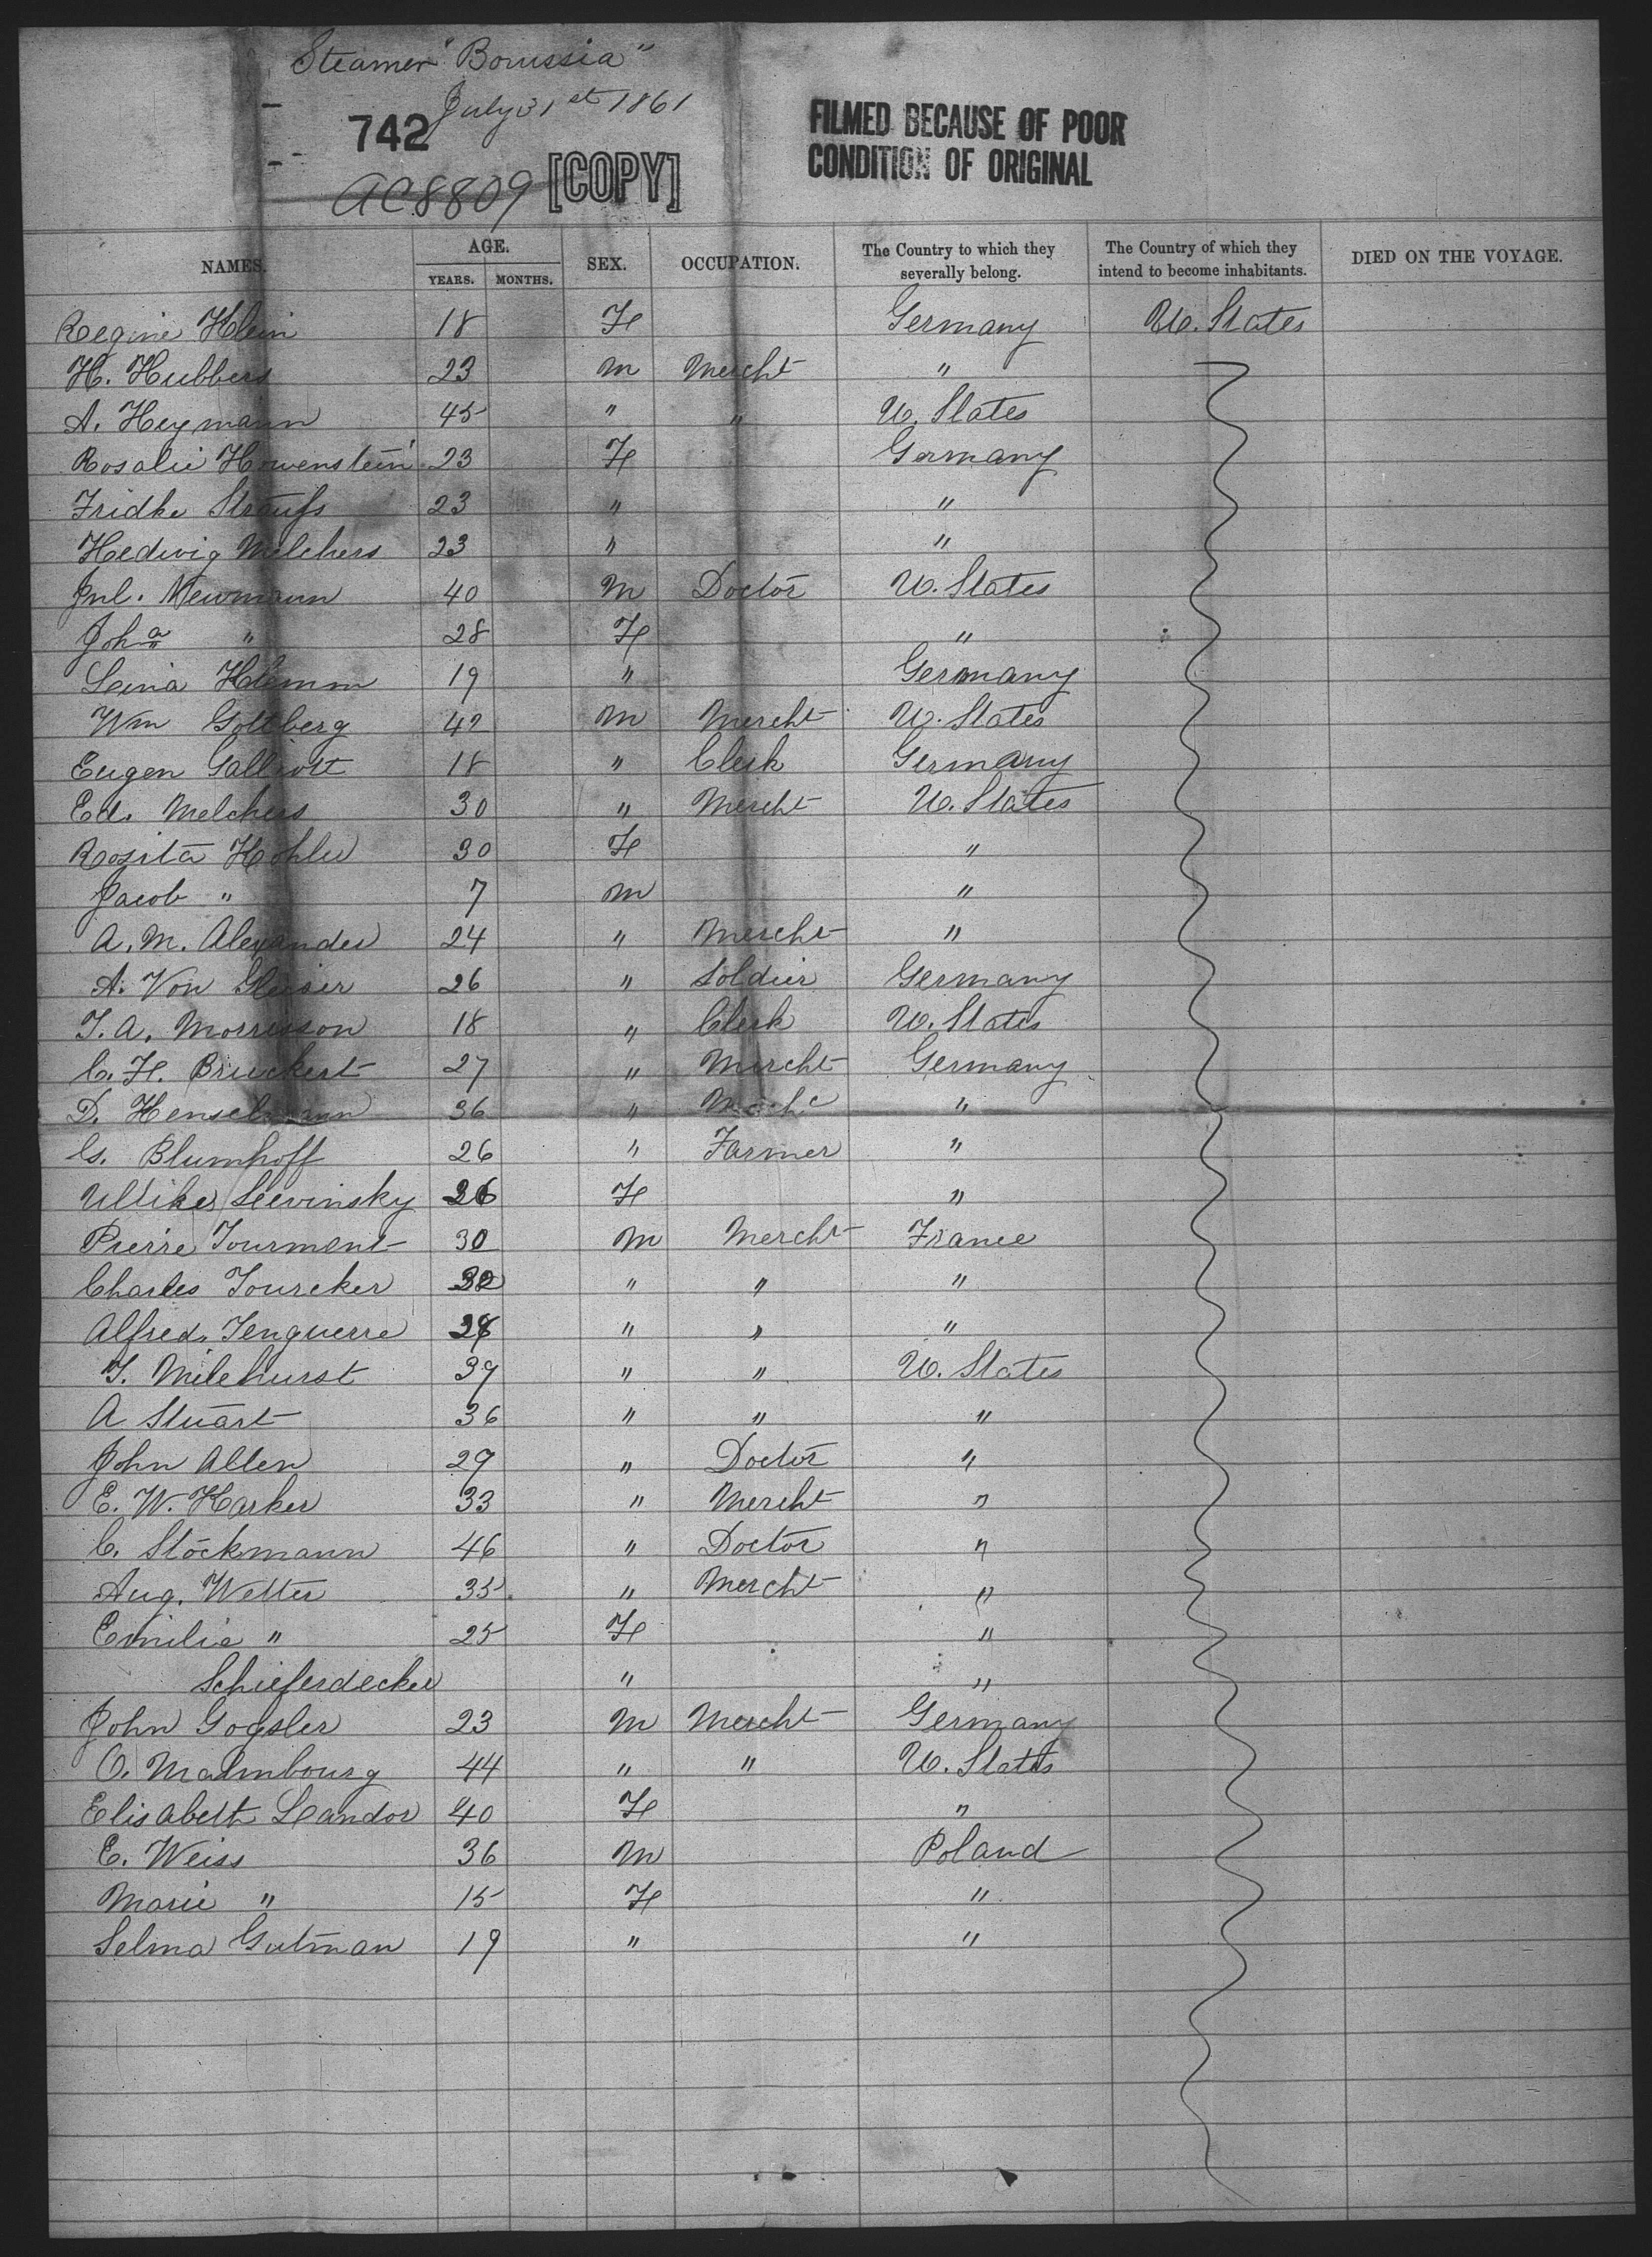 Steamer "Borussia"
July 31st 1861
742
AC8809 [COPY]
FILMED BECAUSE OF POOR
CONDITION OF ORIGINAL
NAMES. AGE. YEARS. MONTHS. SEX. OCCUPATION. The Country to which they severally belong. The Country of which they intend to become inhabitants. DIED ON THE VOYAGE.
Regine Klein 18 F Germany U. States
H. Hubbers 23 M Mercht "
A. Heymann 45 " " U. States
Rosalie Howenstein 23 F Germany
Fridke Straufs 23 " "
Hedwig Melchers 23 " "
Jul. Newmann 40 M Doctor U. States
Joha " 28 F "
Leina Klemm 19 " Germany
Wm Goldberg 42 M Mercht U. States
Eugen 18 " Clerk Germany
Ed. Melchers 30 " Mercht U. States
Rosita Kohler 30 F "
Jacob " 7 M "
A. M. Alexander 24 " Mercht "
A. Von 26 " Soldier Germany
T. A. Morrisson 18 " Clerk U. States
C. F. Bruckert 27 " Mercht Germany
D. Henselmann 36 " "
Cs. Blumhoff 26 " Farmer "
Ullike Leevinsky 26 F "
Pierre Tourment 30 M Mercht France
Charles Tourcker 32 " " "
Alfred Tenguerre 28 " " "
T. Milehurst 37 " " U. States
A Stuart 36 " " "
John Allen 29 " Doctor "
E. W. Harker 33 " Mercht "
C. Stockmann 46 " Doctor "
Aug. Wetter 35 " Mercht "
Emilie " 25 F "
Schieferdecker " "
John Gogsler 23 M Mercht Germany
O. Malmbourg 44 " " U. States
Elisabeth Leandor 40 F "
E. Weiss 36 M Poland
Marie " 15 F "
Selma Gutman 19 " "